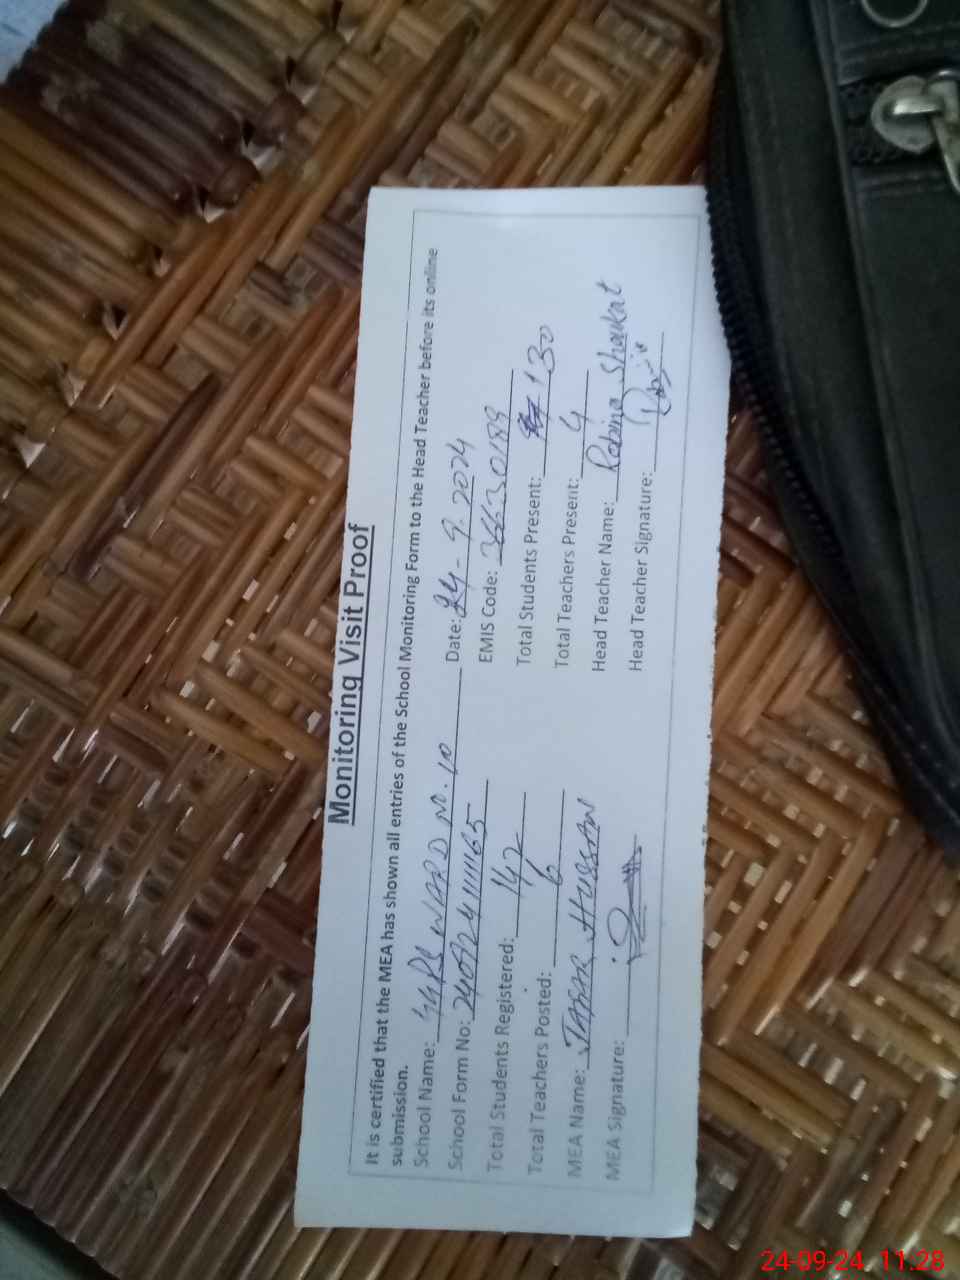 Monitoring Visit Proof
It is certified that the MEA has shown all entries of the School Monitoring Form to the Head Teacher before its online
submission.
School Name: GGPS WARD NO. 10 Date: 24-9.2024
School Form No: EMIS Code: 36630189
Total Students Registered: 147 Total Students Present: 130
Total Teachers Posted: 6 Total Teachers Present: 4
MEA Name: JAFAR HUSSAN Head Teacher Name: Robina Shaukat
MEA Signature: Head Teacher Signature:
24-09-24 11:28